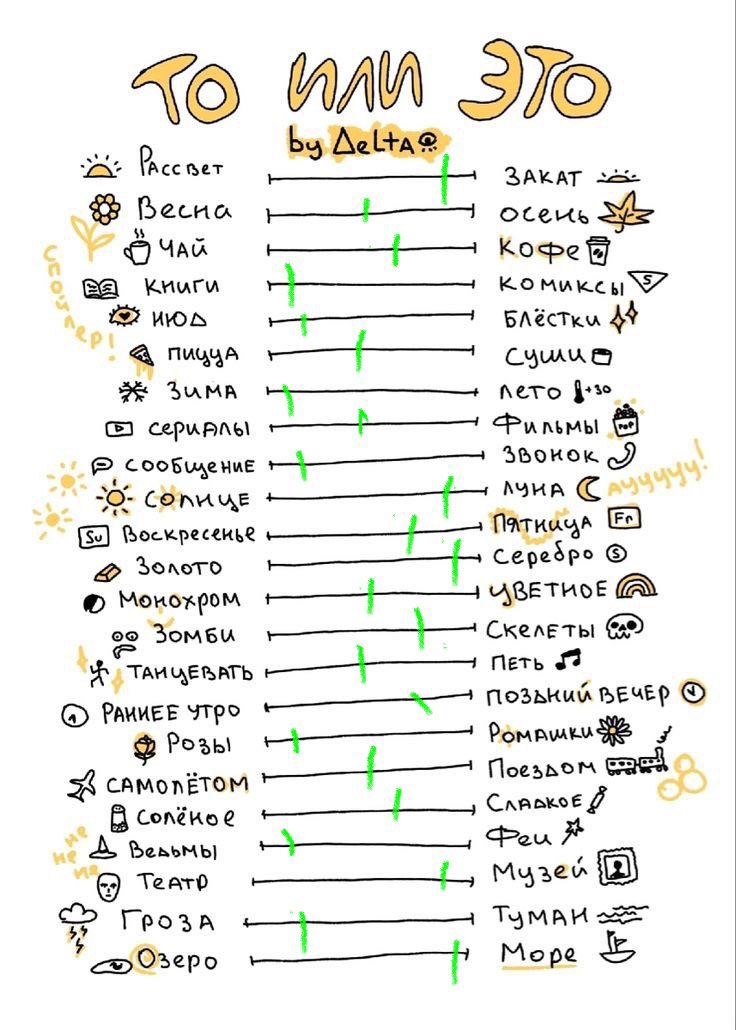 ТО ИЛИ ЭТО
by Delta
Рассвет Закат
Весна Осень
Чай Кофе
Спойлер!
Книги Комиксы S
нюд Блёстки
пицца суши
Зима Лето +30
сериалы Фильмы POP
сообщение Звонок
Солнце Луна Аууууу!
Su Воскресенье Пятница Fr
Золото Серебро S
Монохром Цветное
Зомби Скелеты
Танцевать Петь
Раннее утро Поздний вечер
Розы Ромашки
самолётом Поездом
Солёное Сладкое
не не не
Ведьмы Феи
Театр Музей
Гроза Туман
Озеро Море